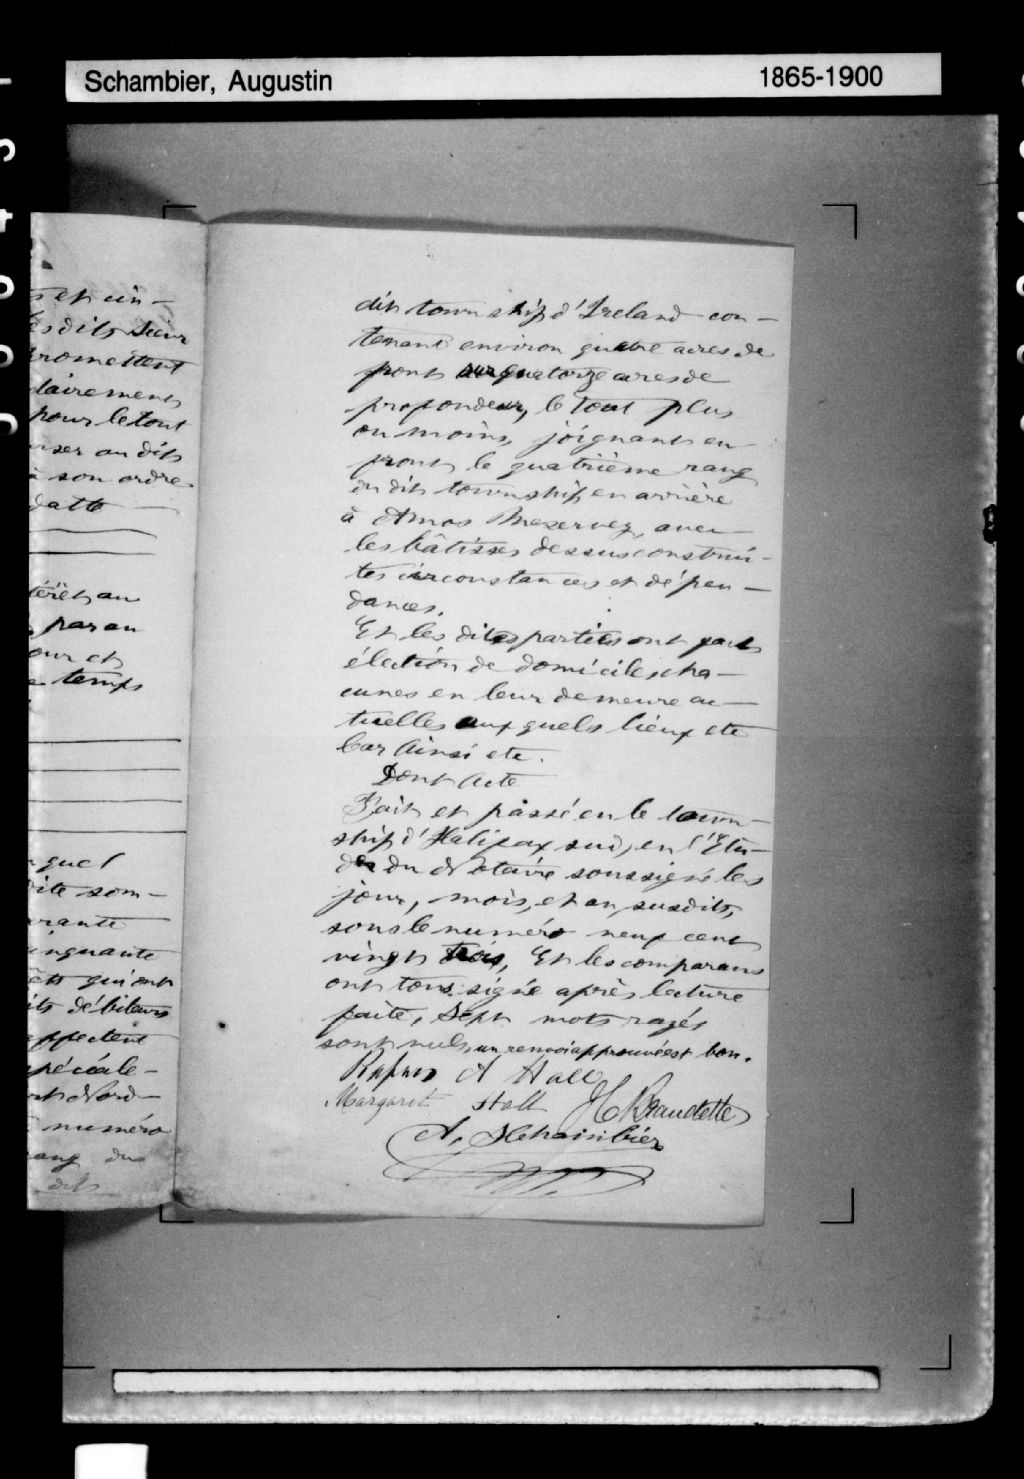 Schambier, Augustin 1865-1900
s et cin-
lesdits Sieur
promettent
dairement
pour le tout
ser au dit
à son ordre
datte —
térêt, au
par an
our et
temps
quel
dite som-
rante
inquante
êts qui ont
its débiteurs
ppectent
péciale-
Nord-
numéro
rang du
dit
dit township d'Ireland con-
tenant environ quatre acres de
front sur quatorze acres de
profondeur, le tout plus
ou moins, joignant en
front le quatrième rang
du dit township, en arrière
à Amos Meservey, avec
les bâtisses dessus construi-
tes circonstances et dépen-
dances.
Et les dites parties ont fait
élection de domicile, cha-
cunes en leur demeure ac-
tuelles auxquels lieux etc
Car Ainsi etc.
Dont Acte
Fait et passé en le town-
ship d'Halifax sud, en l'Etu-
de du Notaire soussigné les
jour, mois, et an susdits,
sous le numéro neuf cent
vingt trois, Et les comparans
ont tous signé après lecture
faite, Sept mots rayés
sont nuls, un renvoi approuvé est bon.
Rufus A Hall
Margaret Hall JC Beaudette
A. Schambier
N.P.